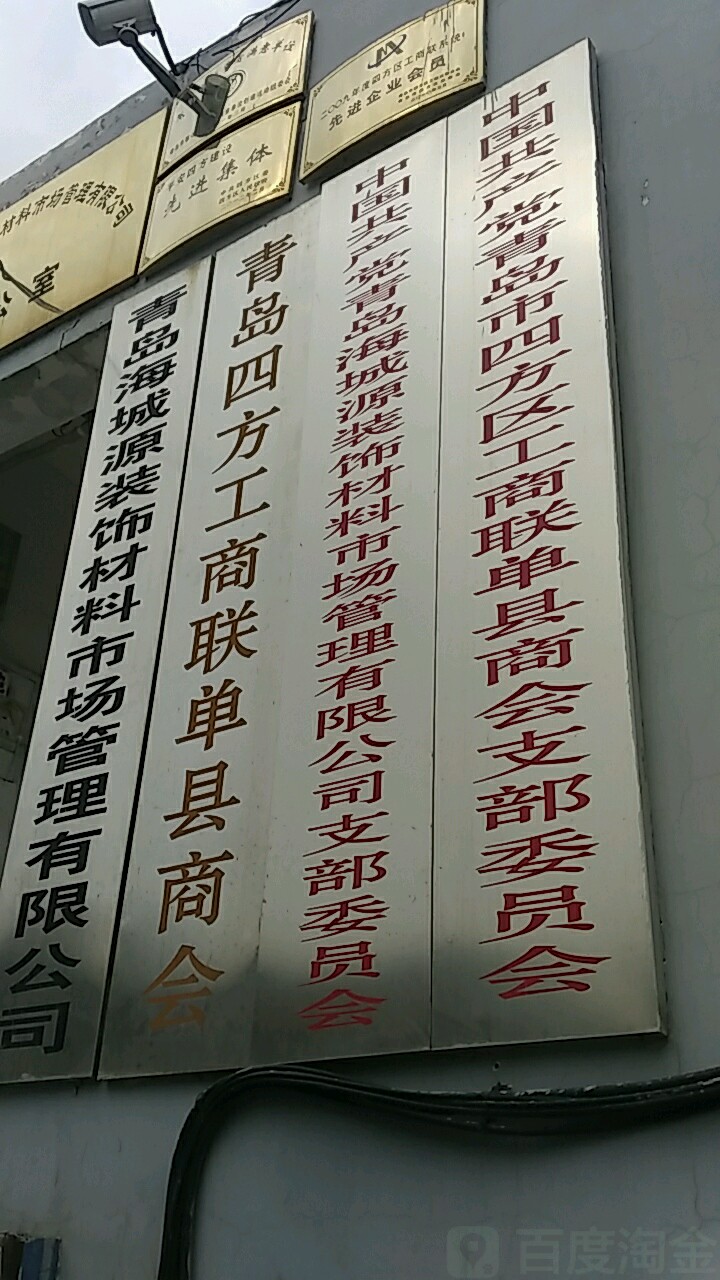 二〇〇九年度四方区工商联系统
先进企业会员
平安四方建设
先进集体
材料市场管理有限公司
室
青岛海城源装饰材料市场管理有限公司
青岛四方工商联单县商会
中国共产党青岛海城源装饰材料市场管理有限公司支部委员会
中国共产党青岛市四方区工商联单县商会支部委员会
百度淘金